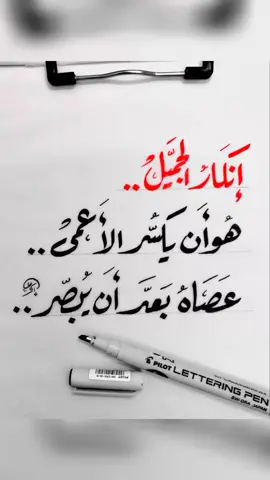 إنكَارُ الجَمِيَّلْ..
هُوأَن يَكسُر الأَعمىْ..
عَصَاهُ بَعدَ أَن يُبصّر..
PILOT LETTERING PEN
JAPAN